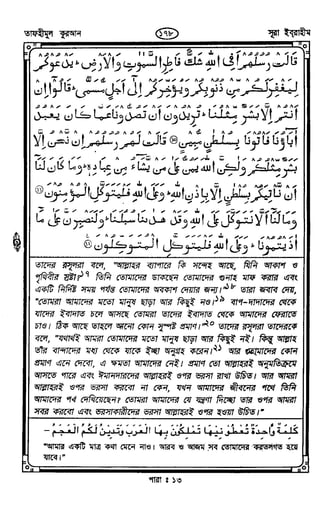 তাফহীমুল কুরআন
১৭৮
সূরা ইবরাহীম
قَالَتْ رُسُلُهُمْ أَفِي اللَّهِ شَكٌّ فَاطِرِ السَّمٰوٰتِ وَالْأَرْضِ ۚ يَدْعُوكُمْ
لِيَغْفِرَ لَكُمْ مِّنْ ذُنُوبِكُمْ وَيُؤَخِّرَكُمْ إِلٰى أَجَلٍ مُّسَمًّى ۚ قَالُوا إِنْ
أَنْتُمْ إِلَّا بَشَرٌ مِّثْلُنَا ۚ تُرِيدُونَ أَنْ تَصُدُّونَا عَمَّا كَانَ يَعْبُدُ
آبَاؤُنَا فَأْتُونَا بِسُلْطٰنٍ مُّبِينٍ ⑩ قَالَتْ لَهُمْ رُسُلُهُمْ إِنْ نَّحْنُ إِلَّا
بَشَرٌ مِّثْلُكُمْ وَلٰكِنَّ اللَّهَ يَمُنُّ عَلٰى مَنْ يَّشَاءُ مِنْ عِبَادِهٖ ۚ وَمَا كَانَ لَنَا
أَنْ نَّأْتِيَكُمْ بِسُلْطٰنٍ إِلَّا بِإِذْنِ اللَّهِ ۚ وَعَلَى اللَّهِ فَلْيَتَوَكَّلِ الْمُؤْمِنُونَ ⑪
وَمَا لَنَا أَلَّا نَتَوَكَّلَ عَلَى اللَّهِ وَقَدْ هَدٰىنَا سُبُلَنَا ۚ وَلَنَصْبِرَنَّ عَلٰى مَا
آذَيْتُمُونَا ۚ وَعَلَى اللَّهِ فَلْيَتَوَكَّلِ الْمُتَوَكِّلُونَ ⑫
তাদের রসূলরা বলে, "আল্লাহর ব্যাপারে কি সন্দেহ আছে, যিনি আকাশ ও
পৃথিবীর স্রষ্টা?১৭ তিনি তোমাদের ডাকছেন তোমাদের গুনাহ মাফ করার এবং
একটি নির্দিষ্ট সময় পর্যন্ত তোমাদের অবকাশ দেবার জন্য।"১৮ তারা জবাব দেয়,
"তোমরা আমাদের মতো মানুষ ছাড়া আর কিছুই নও।১৯ বাপ-দাদাদের থেকে
যাদের ইবাদাত চলে আসছে তোমরা তাদের ইবাদাত থেকে আমাদের ফেরাতে
চাও। ঠিক আছে তাহলে আনো কোন সুস্পষ্ট প্রমাণ।"২০ তাদের রসূলরা তাদেরকে
বলে, "যথার্থই আমরা তোমাদের মতো মানুষ ছাড়া আর কিছুই নই। কিন্তু আল্লাহ
তাঁর বান্দাদের মধ্য থেকে যাকে ইচ্ছা অনুগ্রহ করেন।২১ আর তোমাদের কোন
প্রমাণ এনে দেবো, এ ক্ষমতা আমাদের নেই। প্রমাণ তো আল্লাহরই অনুমতিক্রমে
আসতে পারে এবং ঈমানদারদের আল্লাহরই ওপর ভরসা রাখা উচিত। আর আমরা
আল্লাহরই ওপর ভরসা করবো না কেন, যখন আমাদের জীবনের পথে তিনি
আমাদের পথ দেখিয়েছেন? তোমরা আমাদের যে যন্ত্রণা দিচ্ছো তার ওপর আমরা
সবর করবো এবং ভরসাকারীদের ভরসা আল্লাহরই ওপর হওয়া উচিত।"
كَلِمَةٌ وَاحِدَةٌ تُعْطُونِيْهَا تَمْلِكُوْنَ بِهَا الْعَرَبَ وَتَدِيْنُ لَكُمُ الْعَجَمُ –
"আমার একটি মাত্র কথা মেনে নাও। আরব ও আজম সব তোমাদের করতলগত হয়ে
যাবে।"
পারা : ১৩